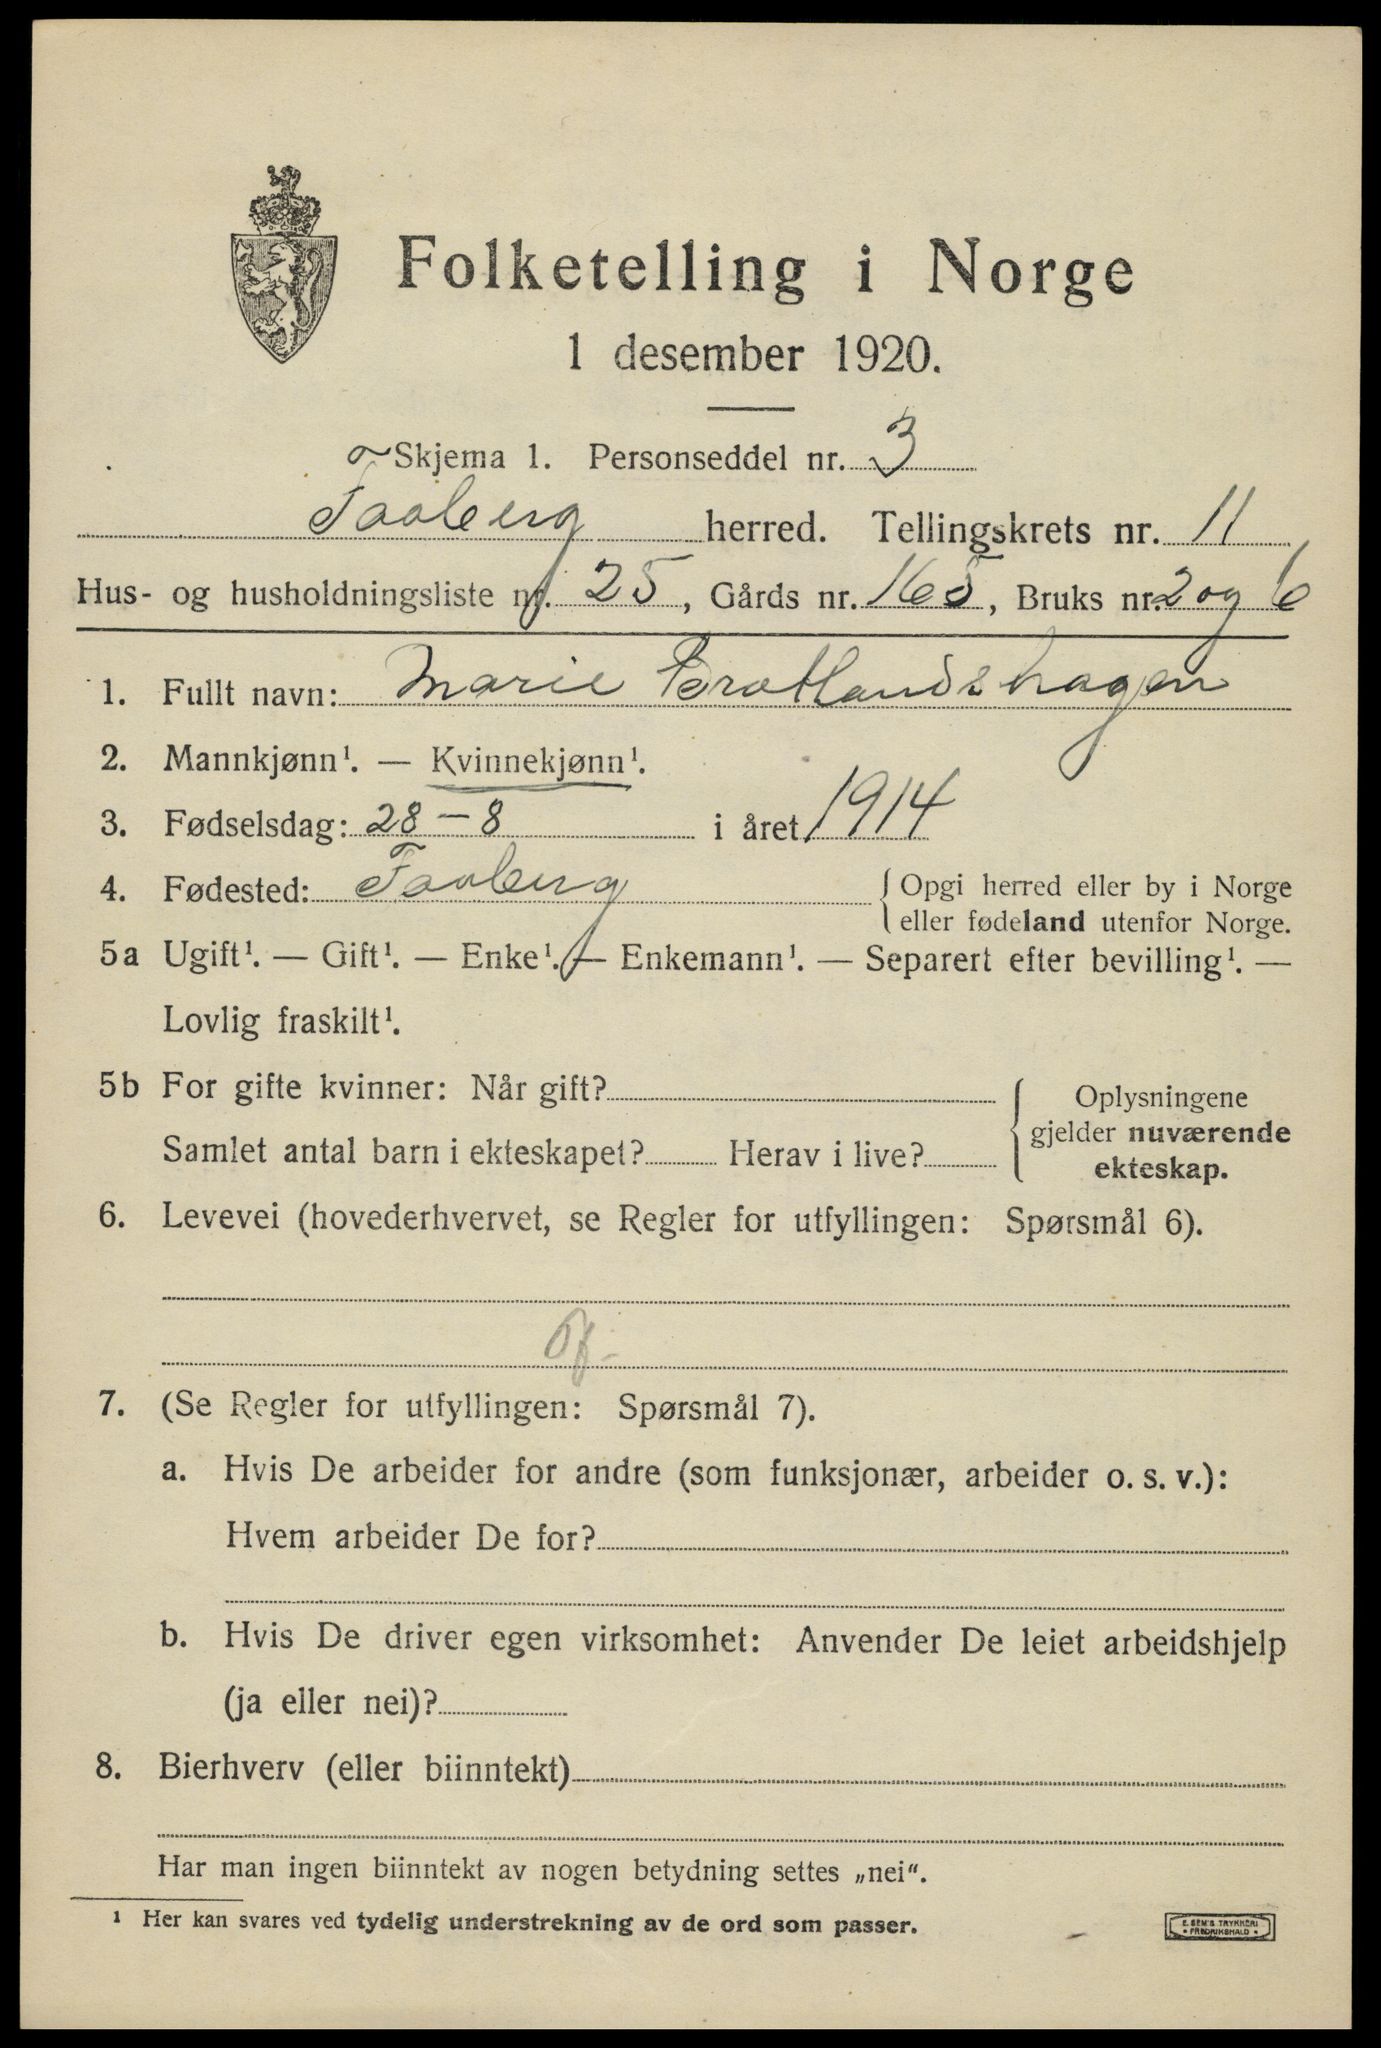 Folketelling i Norge
1 desember 1920.
Skjema 1. Personseddel nr. 3
Faaberg herred. Tellingskrets nr. 11
Hus- og husholdningsliste nr. 25, Gårds nr. 165, Bruks nr. 2 og 6
1. Fullt navn: Marie Brotlandshagen
2. Mannkjønn¹. — Kvinnekjønn¹.
3. Fødselsdag: 28 – 8 i året 1914
4. Fødested: Faaberg { Opgi herred eller by i Norge
eller fødeland utenfor Norge.
5a Ugift¹. — Gift¹. — Enke¹. — Enkemann¹. — Separert efter bevilling¹. —
Lovlig fraskilt¹.
5b For gifte kvinner: Når gift? { Oplysningene
gjelder nuværende
Samlet antal barn i ekteskapet? Herav i live? ekteskap.
6. Levevei (hovederhvervet, se Regler for utfyllingen: Spørsmål 6).
7. (Se Regler for utfyllingen: Spørsmål 7).
a. Hvis De arbeider for andre (som funksjonær, arbeider o. s. v.):
Hvem arbeider De for?
b. Hvis De driver egen virksomhet: Anvender De leiet arbeidshjelp
(ja eller nei)?
8. Bierhverv (eller biinntekt)
Har man ingen biinntekt av nogen betydning settes „nei“.
¹ Her kan svares ved tydelig understrekning av de ord som passer.
E. SEM'S TRYKKERI
• FREDRIKSHALD •